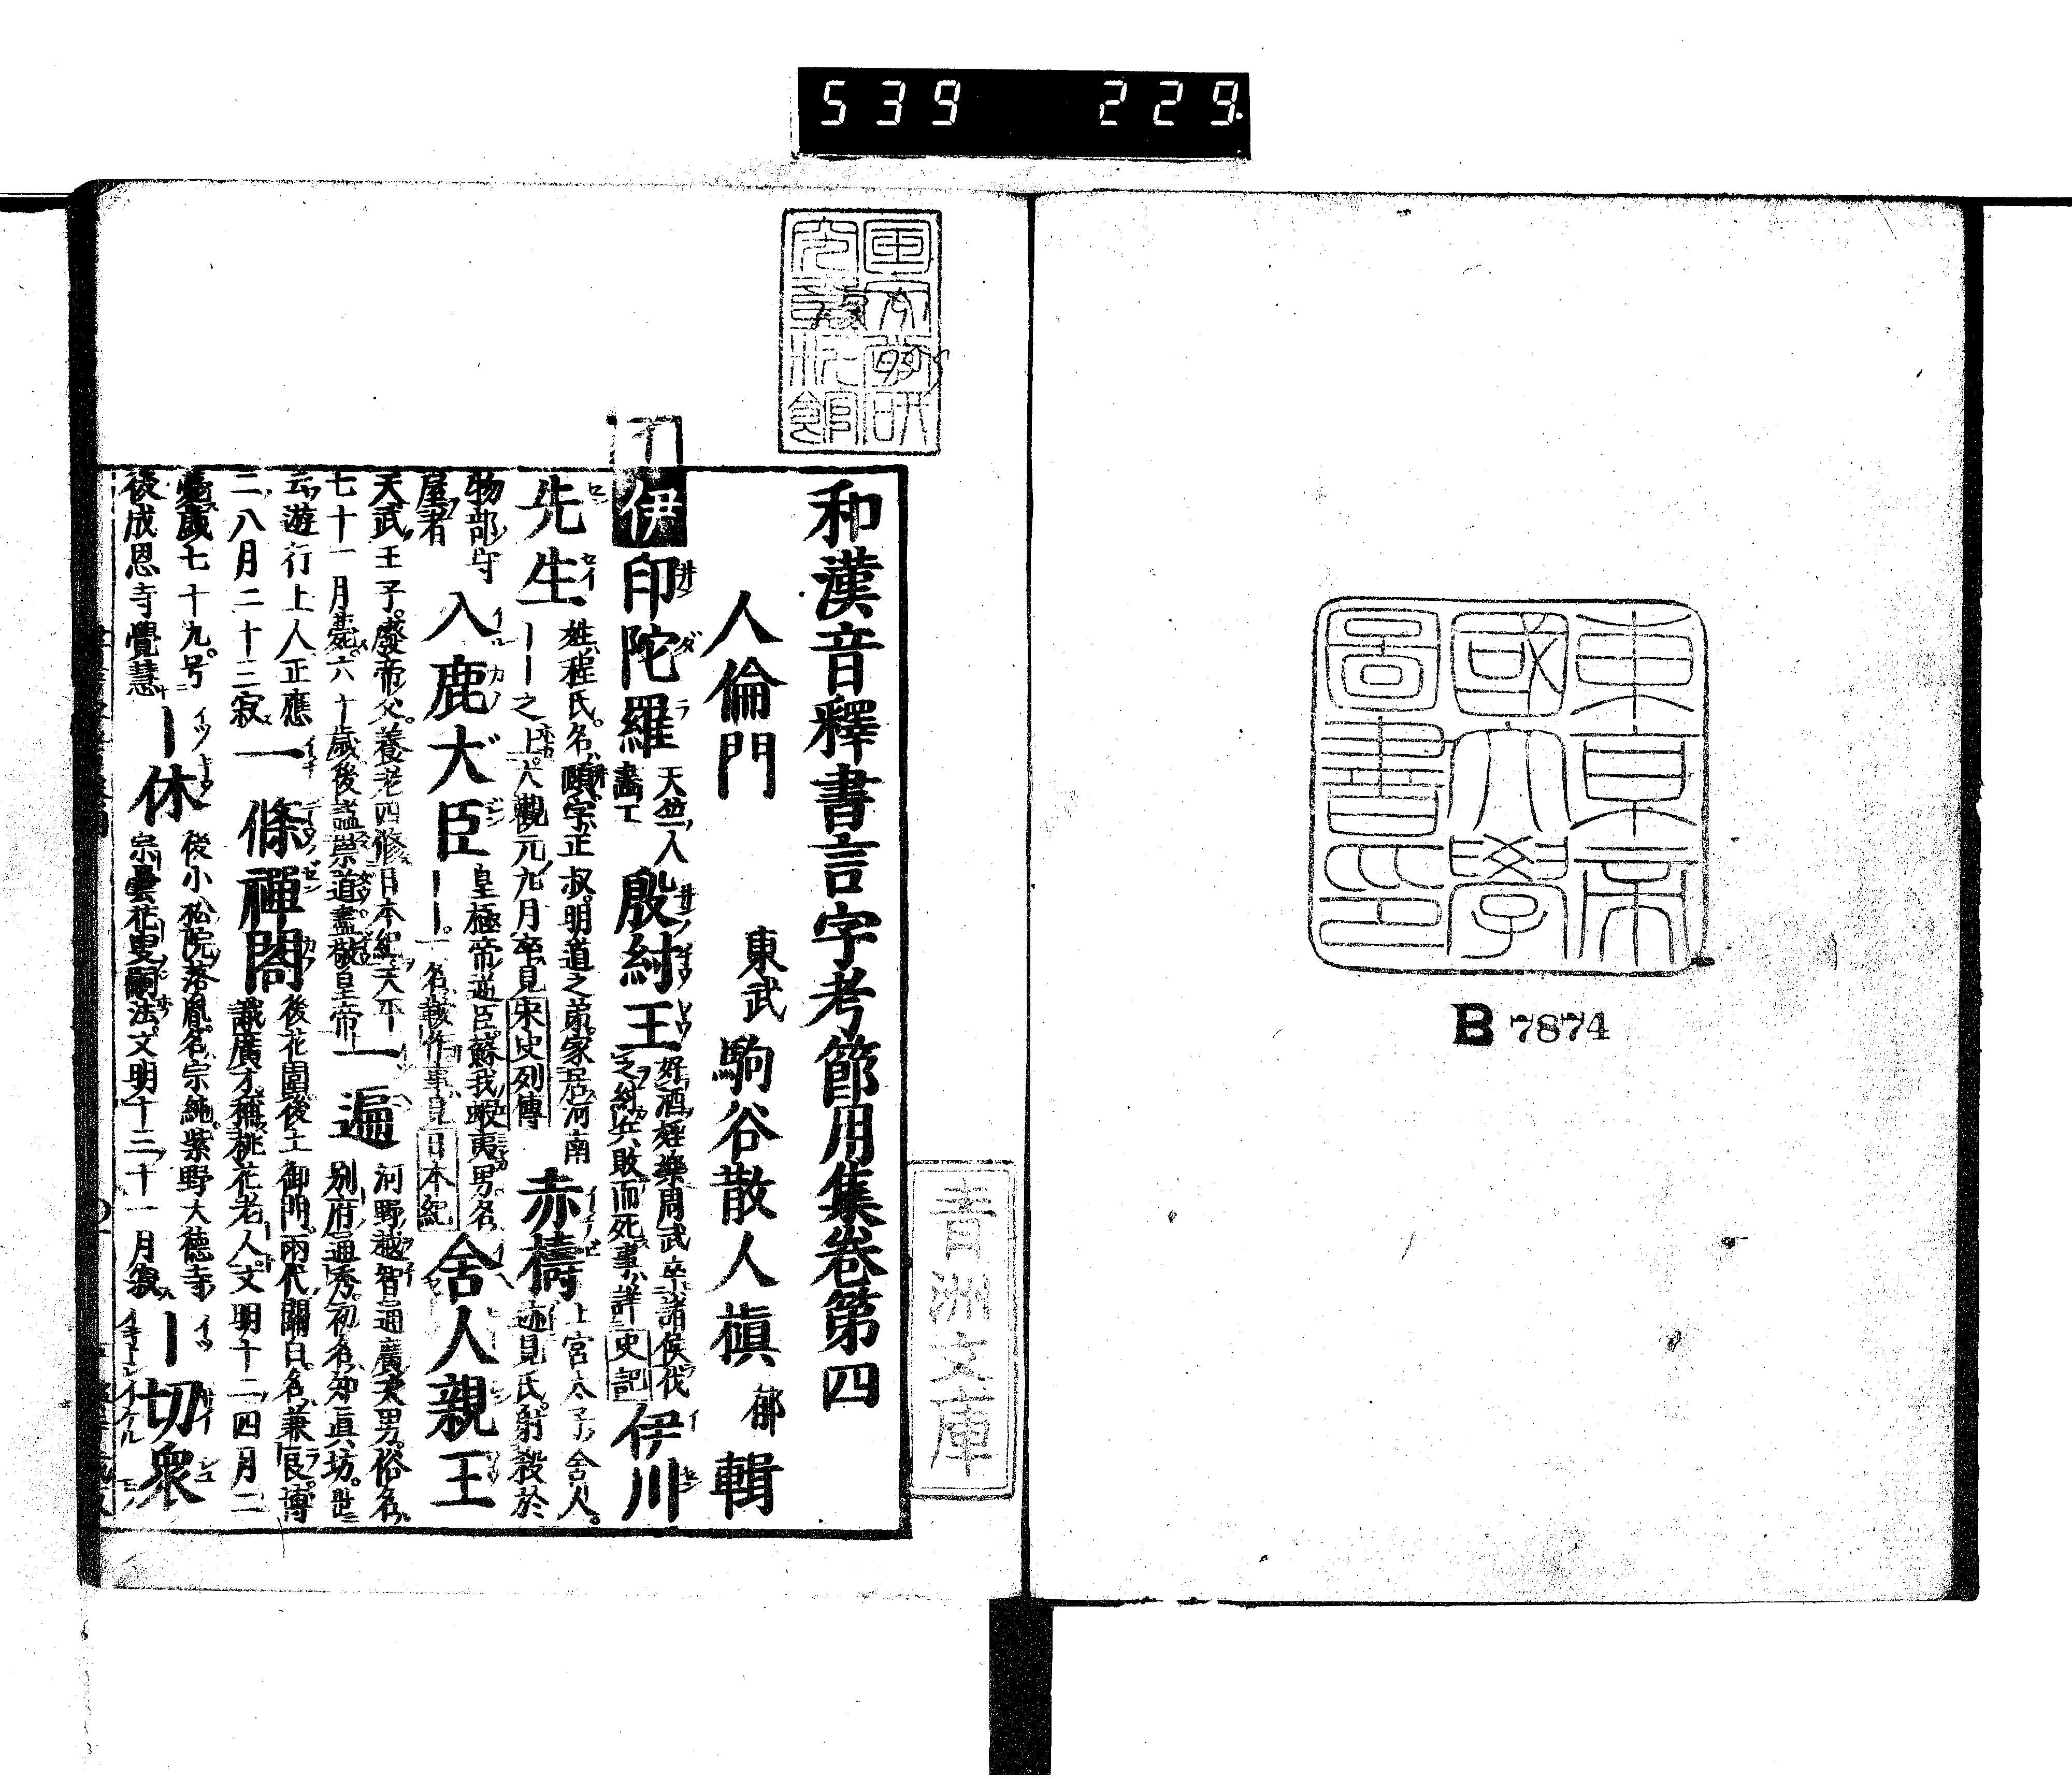 539 229.
東京帝
國大學
圖書印
B 7874
青洲文庫
和漢音釋書言字考節用集卷第四
人倫門 東武 駒谷散人 槙郁 輯
伊 印陀羅 天竺人畫工 殷紂王 好酒婬樂周武卒諸侯伐之紂兵敗而死事詳史記 伊川
先生 姓程氏名頤字正叔明道之弟家居河南 ーー之上大觀元九月卒見宋史列傳 赤檮 上宮太子舍人迹見氏射殺於
物部守屋者 入鹿大臣 皇極帝逆臣蘇我蝦夷男名ーー一名鞍作事見日本紀 舍人親王
天武王子廢帝父養老四修日本紀天平七十一月薨六十歲後謚崇道盡敬皇帝 一遍 河野越智通廣男俗名別府通秀初名知眞坊世
云遊行上人正應二八月二十三寂 一條禪閤 後花園後土御門兩代關白名兼良博識廣才稱桃花老人文明十二四月二
薨歲七十九号後成恩寺覺慧 ー休 後小松院落胤名宗純紫野大德寺宗曇花叟嗣法文明十三十一月寂 ー切衆